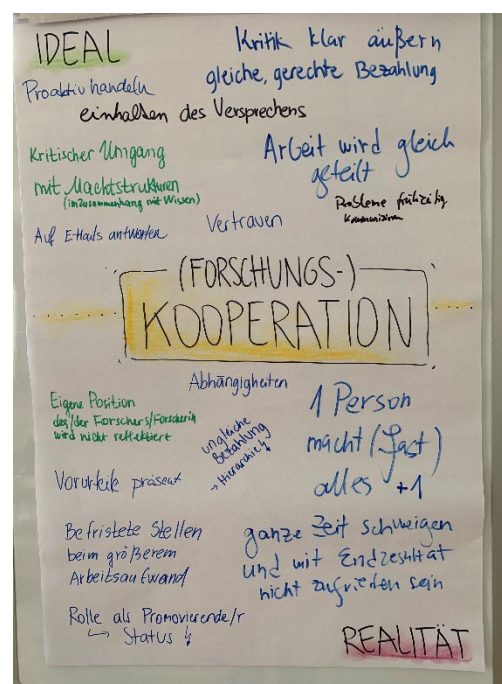 IDEAL
Kritik klar äußern
Proaktiv handeln
gleiche, gerechte Bezahlung
einhalten des Versprechens
Kritischer Umgang
mit Machtstrukturen
(im Zusammenhang mit Wissen)
Arbeit wird gleich
geteilt
Probleme frühzeitig
kommunizieren
Auf E-Mails antworten
Vertrauen
(FORSCHUNGS-)
KOOPERATION
Abhängigkeiten
Eigene Position
des/der Forschers/Forscherin
wird nicht reflektiert
ungleiche
Bezahlung
→ Hierarchie ↯
1 Person
macht (fast)
alles +1
Vorurteile präsent
Befristete Stellen
beim größerem
Arbeitsaufwand
ganze Zeit schweigen
und mit Endresultat
nicht zufrieden sein
Rolle als Promovierende/r
↪ Status ↯
REALITÄT